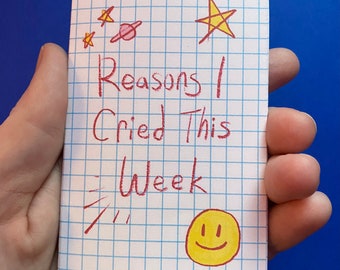 Reasons I
Cried This
Week